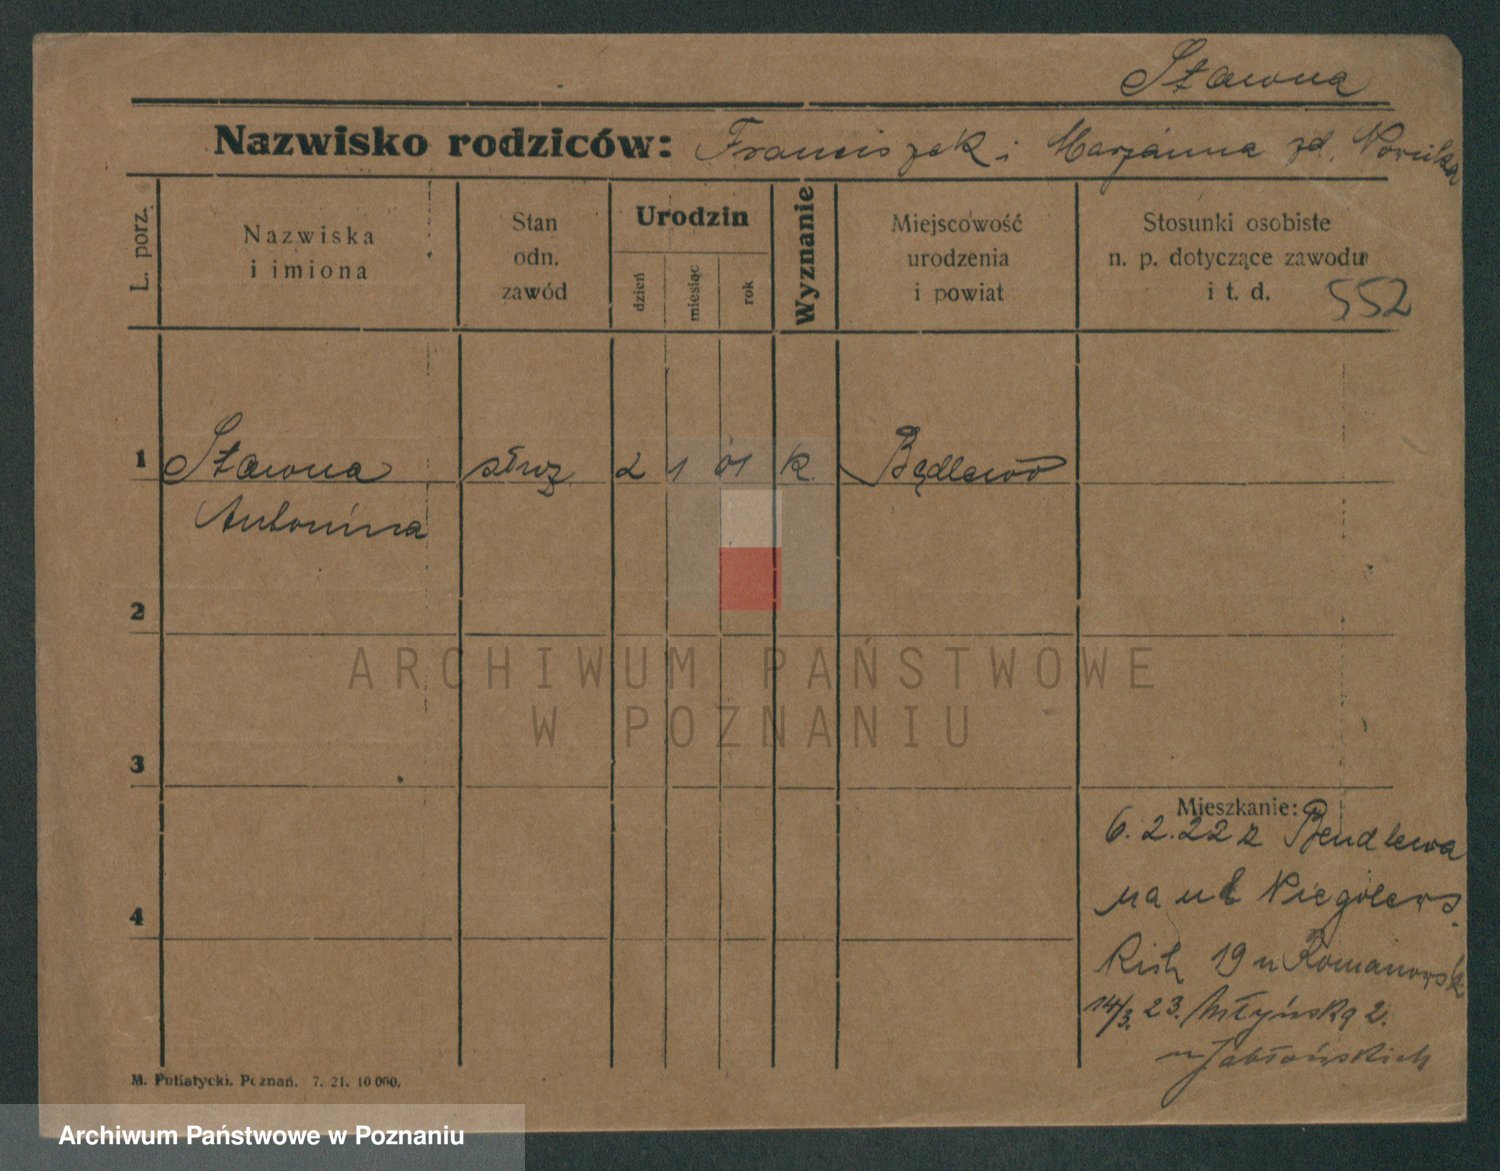 Stawna
Nazwisko rodziców: Franciszek i Marjanna zd. Nowicka
L. porz.
Nazwiska
i imiona
Stan
odn.
zawód
Urodzin
dzień
miesiąc
rok
Wyznanie
Miejscowość
urodzenia
i powiat
Stosunki osobiste
n. p. dotyczące zawodu
i t. d. 552
1 Stawna służ. 2 1 01 k. Będlewo
Antonina
2
ARCHIWUM PAŃSTWOWE
W POZNANIU
3
Mieszkanie:
6.2.22 z Bendlewa
na ul Niegolews
4
kich 19 u Romanowsk.
14/3. 23. Młyńska 2.
u Jabłońskich
M. Putiatycki. Poznań. 7. 21. 10 000.
Archiwum Państwowe w Poznaniu